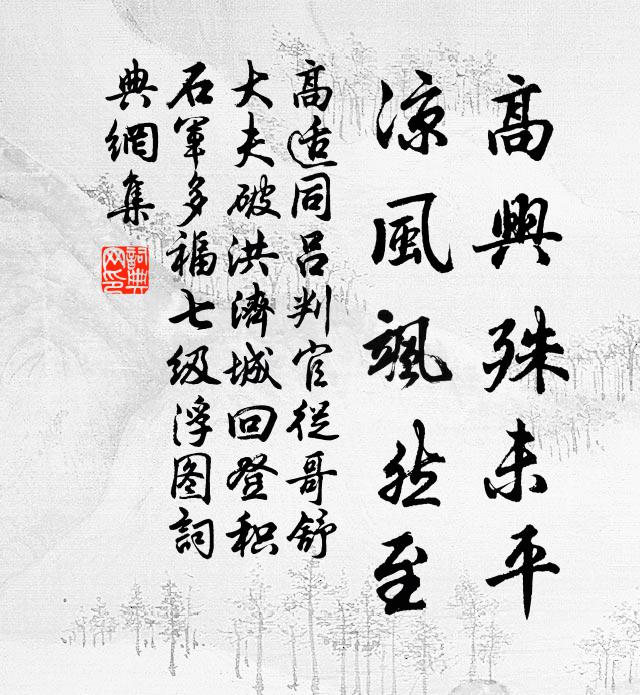 高興殊未平
涼風颯然至
高适同呂判官從哥舒
大夫破洪濟城回登积
石軍多福七级浮图詞
典網集
詞典